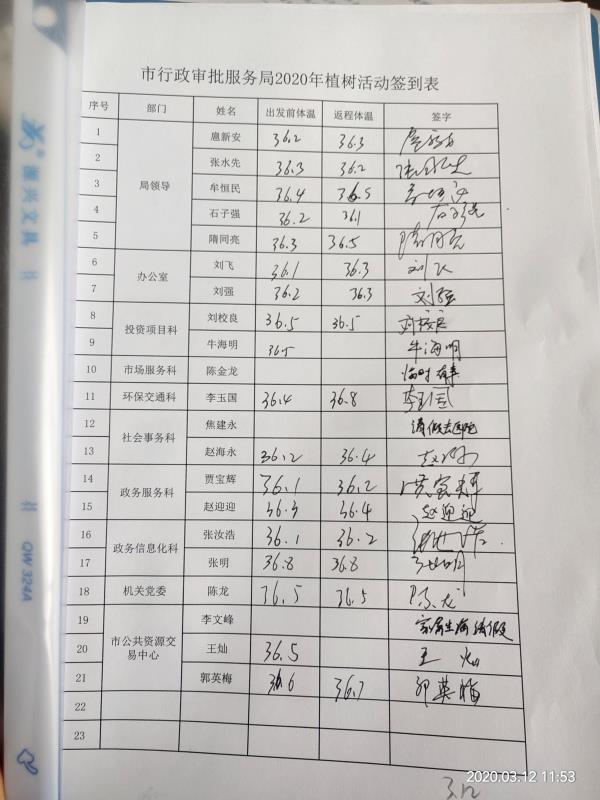 市行政审批服务局2020年植树活动签到表
序号 部门 姓名 出发前体温 返程体温 签字
1 局领导 扈新安 36.2 36.3
2 张水先 36.3 36.2
3 牟恒民 36.4 36.5
4 石子强 36.2 36.1 石子强
5 隋同亮 36.3 36.5 隋同亮
6 办公室 刘飞 36.1 36.3 刘飞
7 刘强 36.2 36.3 刘强
8 投资项目科 刘校良 36.5 36.5 刘校良
9 牛海明 36.5 牛海明
10 市场服务科 陈金龙 临时有事
11 环保交通科 李玉国 36.4 36.8 李玉国
12 社会事务科 焦建永 请假去医院
13 赵海永 36.2 36.4
14 政务服务科 贾宝辉 36.1 36.2
15 赵迎迎 36.3 36.4 赵迎迎
16 政务信息化科 张汝浩 36.1 36.2
17 张明 36.8 36.8
18 机关党委 陈龙 36.5 36.5 陈龙
19 市公共资源交易中心 李文峰 家属生病请假
20 王灿 36.5 王灿
21 郭英梅 36.6 36.7 郭英梅
22
23
3.12
2020.03.12 11:53
振兴文具
QW 324A